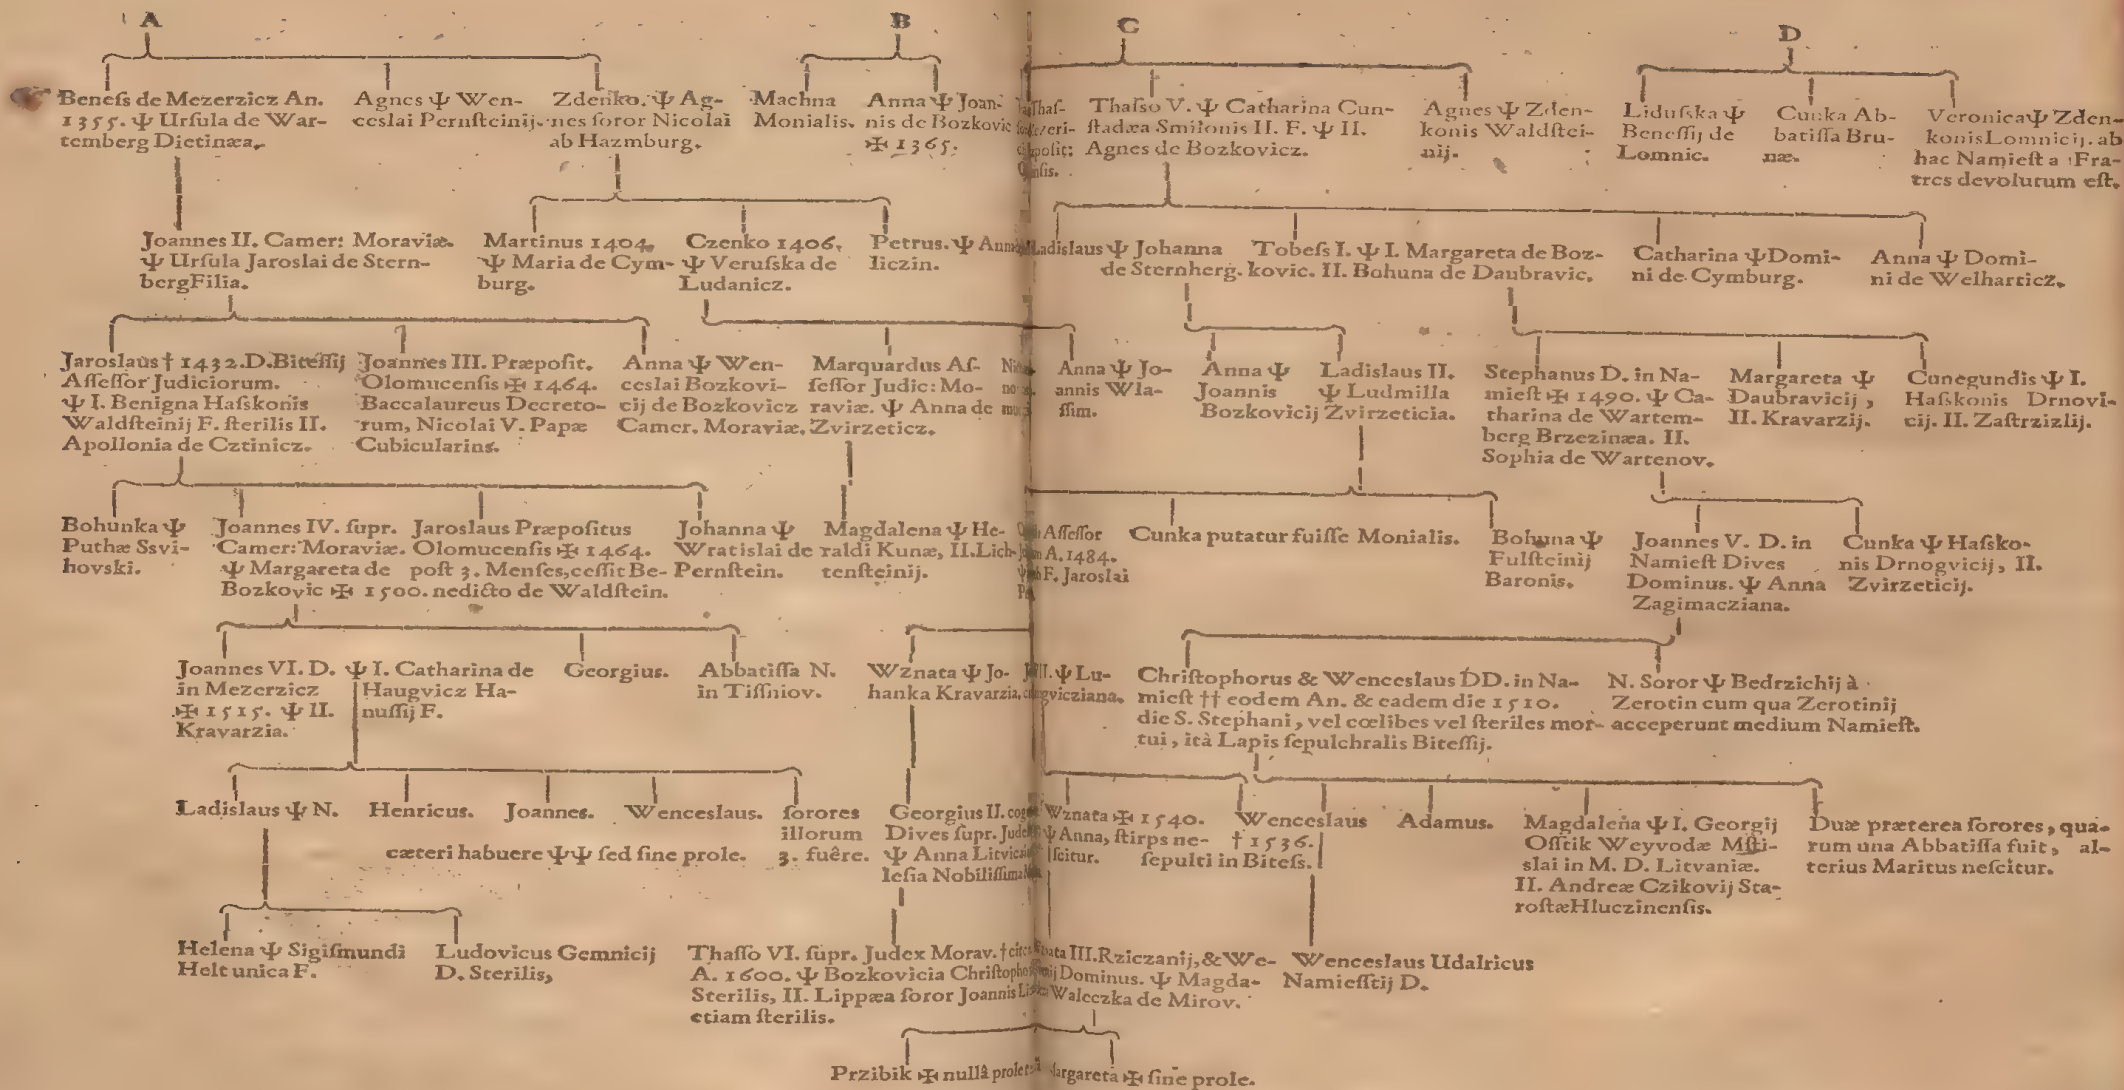 A
B
C
D
Beneſs de Mezerzicz An.
1355. Ψ Urſula de War-
temberg Dietinæa.
Agnes Ψ Wen-
ceslai Pernſteinij.
Zdenko. Ψ Ag-
nes ſoror Nicolai
ab Hazmburg.
Machna
Monialis.
Anna Ψ Joan-
nis de Bozkovic
✠ 1365.
Thaſso V. Ψ Catharina Cun-
ſtadæa Smilonis II. F. Ψ II.
Agnes de Bozkovicz.
Agnes Ψ Zden-
konis Waldſtei-
nij.
Liduſska Ψ
Beneſſij de
Lomnic.
Cunka Ab-
batiſſa Bru-
næ.
Veronica Ψ Zden-
konis Lomnicij. ab
hac Namieſt a Fra-
tres devolutum eſt.
Joannes II. Camer: Moraviæ.
Ψ Urſula Jaroslai de Stern-
berg Filia.
Martinus 1404.
Ψ Maria de Cym-
burg.
Czenko 1406.
Ψ Veruſska de
Ludanicz.
Petrus. Ψ Anna
liczin.
Ladislaus Ψ Johanna
de Sternberg.
Tobeſs I. Ψ I. Margareta de Boz-
kovic. II. Bohuna de Daubravic.
Catharina Ψ Domi-
ni de Cymburg.
Anna Ψ Domi-
ni de Welharticz.
Jaroslaus † 1432. D. Biteſſij
Aſſeſſor Judiciorum.
Ψ I. Benigna Haſskonis
Waldſteinij F. ſterilis II.
Apollonia de Cztinicz.
Joannes III. Præpoſit.
Olomucenſis ✠ 1464.
Baccalaureus Decreto-
rum, Nicolai V. Papæ
Cubicularius.
Anna Ψ Wen-
ceslai Bozkovi-
cij de Bozkovicz
Camer. Moraviæ.
Marquardus Aſ-
ſeſſor Judic: Mo-
raviæ. Ψ Anna de
Zvirzeticz.
Anna Ψ Jo-
annis Wla-
ſſim.
Anna Ψ
Joannis
Bozkovicij
Ladislaus II.
Ψ Ludmilla
Zvirzeticia.
Stephanus D. in Na-
mieſt ✠ 1490. Ψ Ca-
tharina de Wartem-
berg Brzezinæa. II.
Sophia de Wartenov.
Margareta Ψ
Daubravicij,
II. Kravarzij.
Cunegundis Ψ I.
Haſskonis Drnovi-
cij. II. Zaſtrzizlij.
Bohunka Ψ
Puthæ Ssvi-
hovski.
Joannes IV. ſupr.
Camer: Moraviæ.
Ψ Margareta de
Bozkovic ✠ 1500.
Jaroslaus Præpoſitus
Olomucenſis ✠ 1464.
poſt 3. Menſes, ceſſit Be-
nedicto de Waldſtein.
Johanna Ψ
Wratislai de
Pernſtein.
Magdalena Ψ He-
raldi Kunæ, II. Lich-
tenſteinij.
Aſſeſſor
A. 1484.
F. Jaroslai
Cunka putatur fuiſſe Monialis.
Bohuna Ψ
Fulſteinij
Baronis.
Joannes V. D. in
Namieſt Dives
Dominus. Ψ Anna
Zagimacziana.
Cunka Ψ Haſsko-
nis Drnogvicij, II.
Zvirzeticij.
Joannes VI. D.
in Mezerzicz
✠ 1515. Ψ II.
Kravarzia.
Ψ I. Catharina de
Haugvicz Ha-
nuſſij F.
Georgius.
Abbatiſſa N.
in Tiſſniov.
Wznata Ψ Jo-
hanka Kravarzia,
II. Ψ Lu-
gvicziana.
Chriſtophorus & Wenceslaus DD. in Na-
mieſt †† eodem An. & eadem die 1510.
die S. Stephani, vel cœlibes vel ſteriles mor-
tui, ità Lapis ſepulchralis Biteſſij.
N. Soror Ψ Bedrzichij à
Zerotin cum qua Zerotinij
acceperunt medium Namieſt.
Ladislaus Ψ N.
Henricus.
Joannes.
Wenceslaus.
ſorores
illorum
3. fuêre.
cæteri habuere ΨΨ ſed ſine prole.
Georgius II.
Dives ſupr.
Ψ Anna
leſia Nobiliſſima
Wznata ✠ 1540.
Ψ Anna, ſtirps ne-
ſcitur.
Wenceslaus
† 1536.
ſepulti in Biteſs.
Adamus.
Magdalena Ψ I. Georgij
Oſſtik Weyvodæ Mſti-
slai in M. D. Litvaniæ.
II. Andreæ Czikovij Sta-
roſtæ Hluczinenſis.
Duæ præterea ſorores, qua-
rum una Abbatiſſa fuit, al-
terius Maritus neſcitur.
Helena Ψ Sigiſmundi
Helt unica F.
Ludovicus Gemnicij
D. Sterilis,
Thaſſo VI. ſupr. Judex Morav. †
A. 1600. Ψ Bozkovicia
Sterilis, II. Lippæa ſoror Joannis
etiam ſterilis.
III. Rziczanij, & We-
Dominus. Ψ Magda-
Waleczka de Mirov.
Wenceslaus Udalricus
Namieſſtij D.
Przibik ✠ nullâ prole
Margareta ✠ ſine prole.